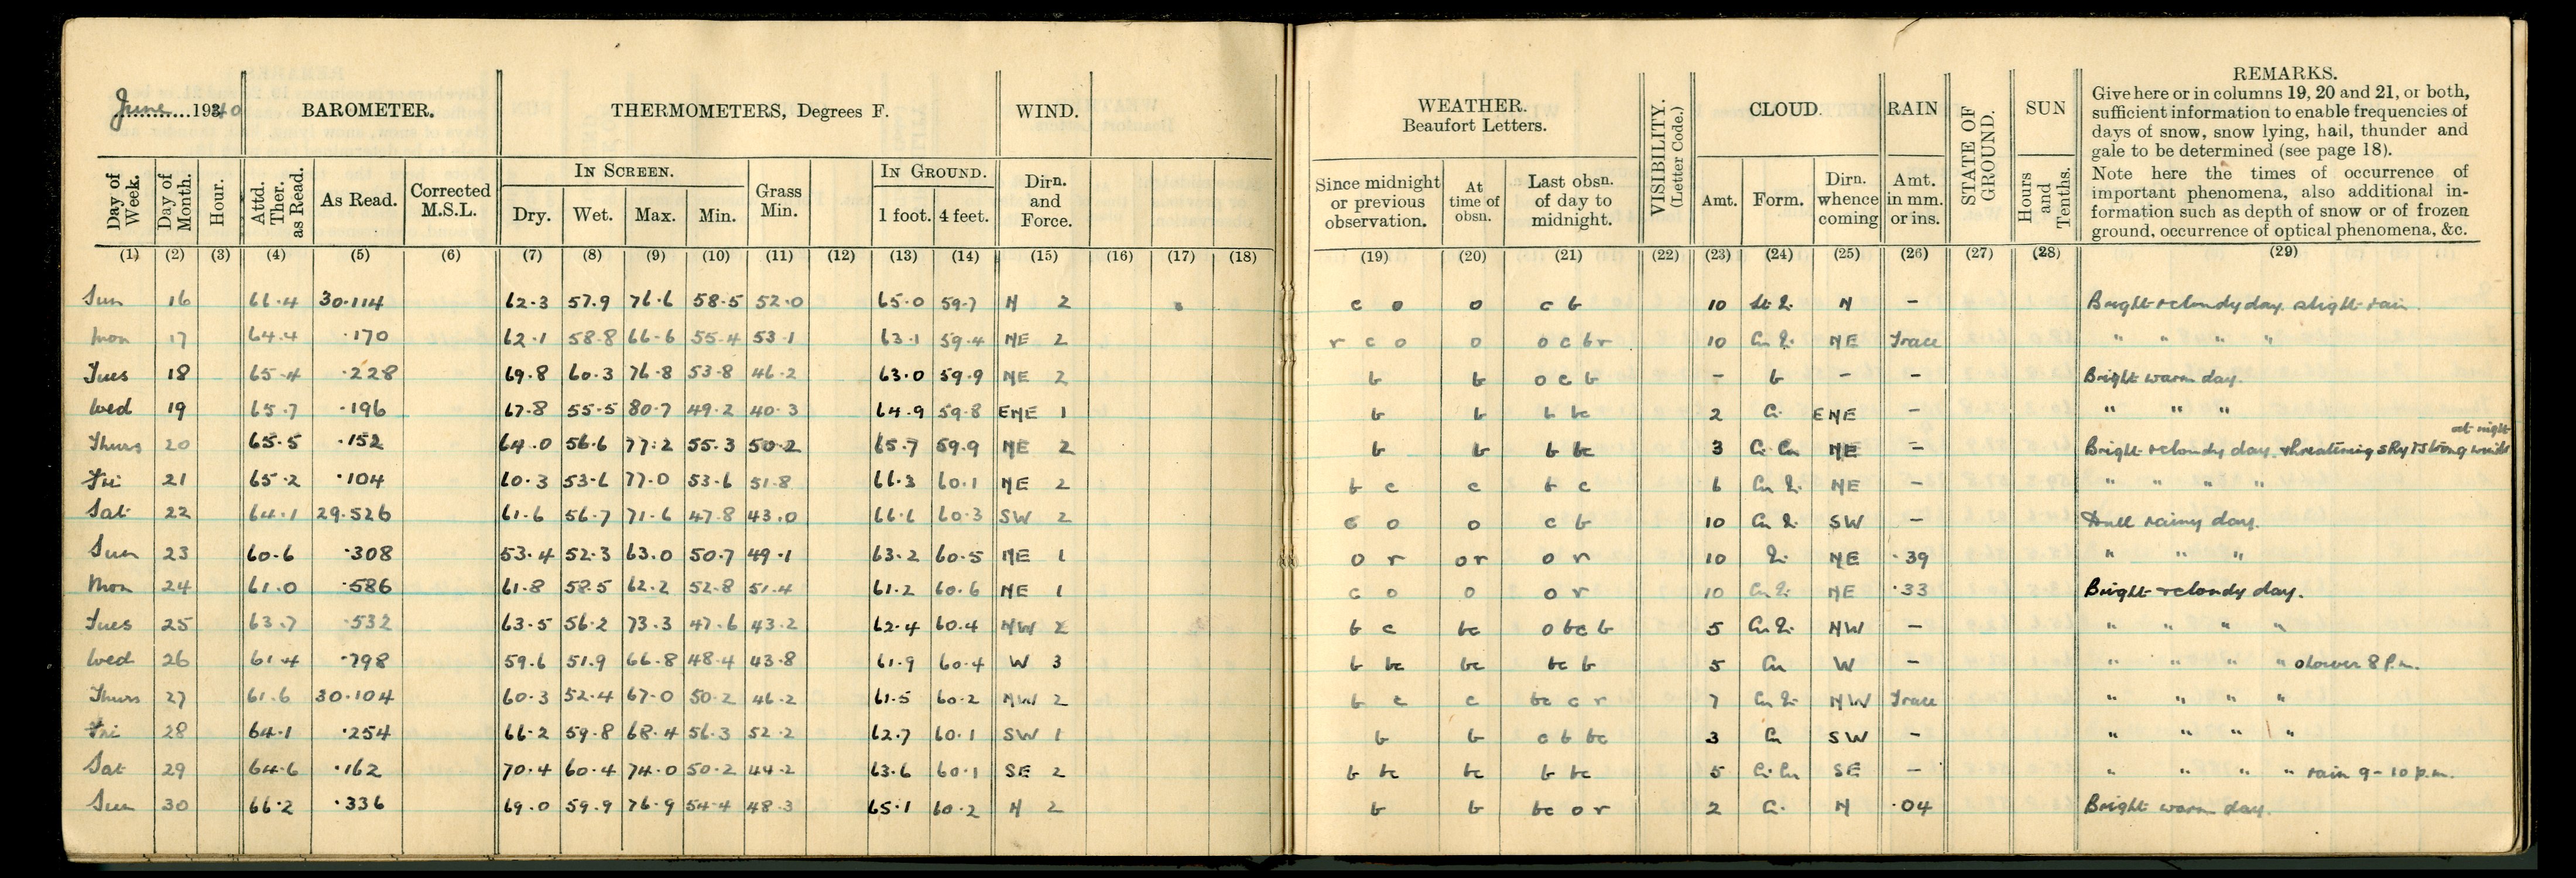 June 1940 BAROMETER. THERMOMETERS, Degrees F. WIND. WEATHER. Beaufort Letters. VISIBILITY. (Letter Code.) CLOUD. RAIN STATE OF GROUND. SUN REMARKS.
Give here or in columns 19, 20 and 21, or both,
sufficient information to enable frequencies of
days of snow, snow lying, hail, thunder and
gale to be determined (see page 18).
Note here the times of occurrence of
important phenomena, also additional in-
formation such as depth of snow or of frozen
ground, occurrence of optical phenomena, &c.
Day of Week. Day of Month. Hour. Attd. Ther. as Read. As Read. Corrected M.S.L. IN SCREEN. Dry. Wet. Max. Min. Grass Min. IN GROUND. 1 foot. 4 feet. Dirn. and Force. Since midnight or previous observation. At time of obsn. Last obsn. of day to midnight. Amt. Form. Dirn. whence coming Amt. in mm. or ins. Hours and Tenths.
(1) (2) (3) (4) (5) (6) (7) (8) (9) (10) (11) (12) (13) (14) (15) (16) (17) (18) (19) (20) (21) (22) (23) (24) (25) (26) (27) (28) (29)
Sun 16 66.4 30.114 62.3 57.9 76.6 58.5 52.0 65.0 59.7 N 2 c o o c b 10 N - Bright & cloudy day. slight rain.
Mon 17 64.4 .170 62.1 58.8 66.6 55.4 53.1 63.1 59.4 NE 2 r c o o o c b r 10 NE Trace " " " "
Tues 18 65.4 .228 69.8 60.3 76.8 53.8 46.2 63.0 59.9 NE 2 b b o c b - b - - Bright warm day.
Wed 19 65.7 .196 67.8 55.5 80.7 49.2 40.3 64.9 59.8 ENE 1 b b b bc 2 Ci. ENE - " " "
Thurs 20 65.5 .152 64.0 56.6 77.2 55.3 50.2 65.7 59.9 NE 2 b b b bc 3 Ci. Cu NE - Bright & cloudy day. threatening sky & strong winds at night
Fri 21 65.2 .104 60.3 53.6 77.0 53.6 51.8 66.3 60.1 NE 2 b c c b c 6 NE - " " " "
Sat 22 64.1 29.526 61.6 56.7 71.6 47.8 43.0 66.6 60.3 SW 2 c o o c b 10 SW - Dull rainy day.
Sun 23 60.6 .308 53.4 52.3 63.0 50.7 49.1 63.2 60.5 NE 1 o r o r o r 10 NE .39 " " "
Mon 24 61.0 .586 61.8 58.5 62.2 52.8 51.4 61.2 60.6 NE 1 c o o o r 10 NE .33 Bright & cloudy day.
Tues 25 63.7 .532 63.5 56.2 73.3 47.6 43.2 62.4 60.4 NW 2 b c bc o bc b 5 NW - " " " "
Wed 26 61.4 .798 59.6 51.9 66.8 48.4 43.8 61.9 60.4 W 3 b bc bc bc b 5 Cu W - " " " " shower 8 p.m.
Thurs 27 61.6 30.104 60.3 52.4 67.0 50.2 46.2 61.5 60.2 NW 2 b c c bc c r 7 NW Trace " " " "
Fri 28 64.1 .254 66.2 59.8 68.4 56.3 52.2 62.7 60.1 SW 1 b b c b bc 3 Cu SW - " " " "
Sat 29 64.6 .162 70.4 60.4 74.0 50.2 44.2 63.6 60.1 SE 2 b bc bc b bc 5 Ci. Cu SE - " " " " rain 9-10 p.m.
Sun 30 66.2 .336 69.0 59.9 76.9 54.4 48.3 65.1 60.2 N 2 b b bc o r 2 Ci. N .04 Bright warm day.